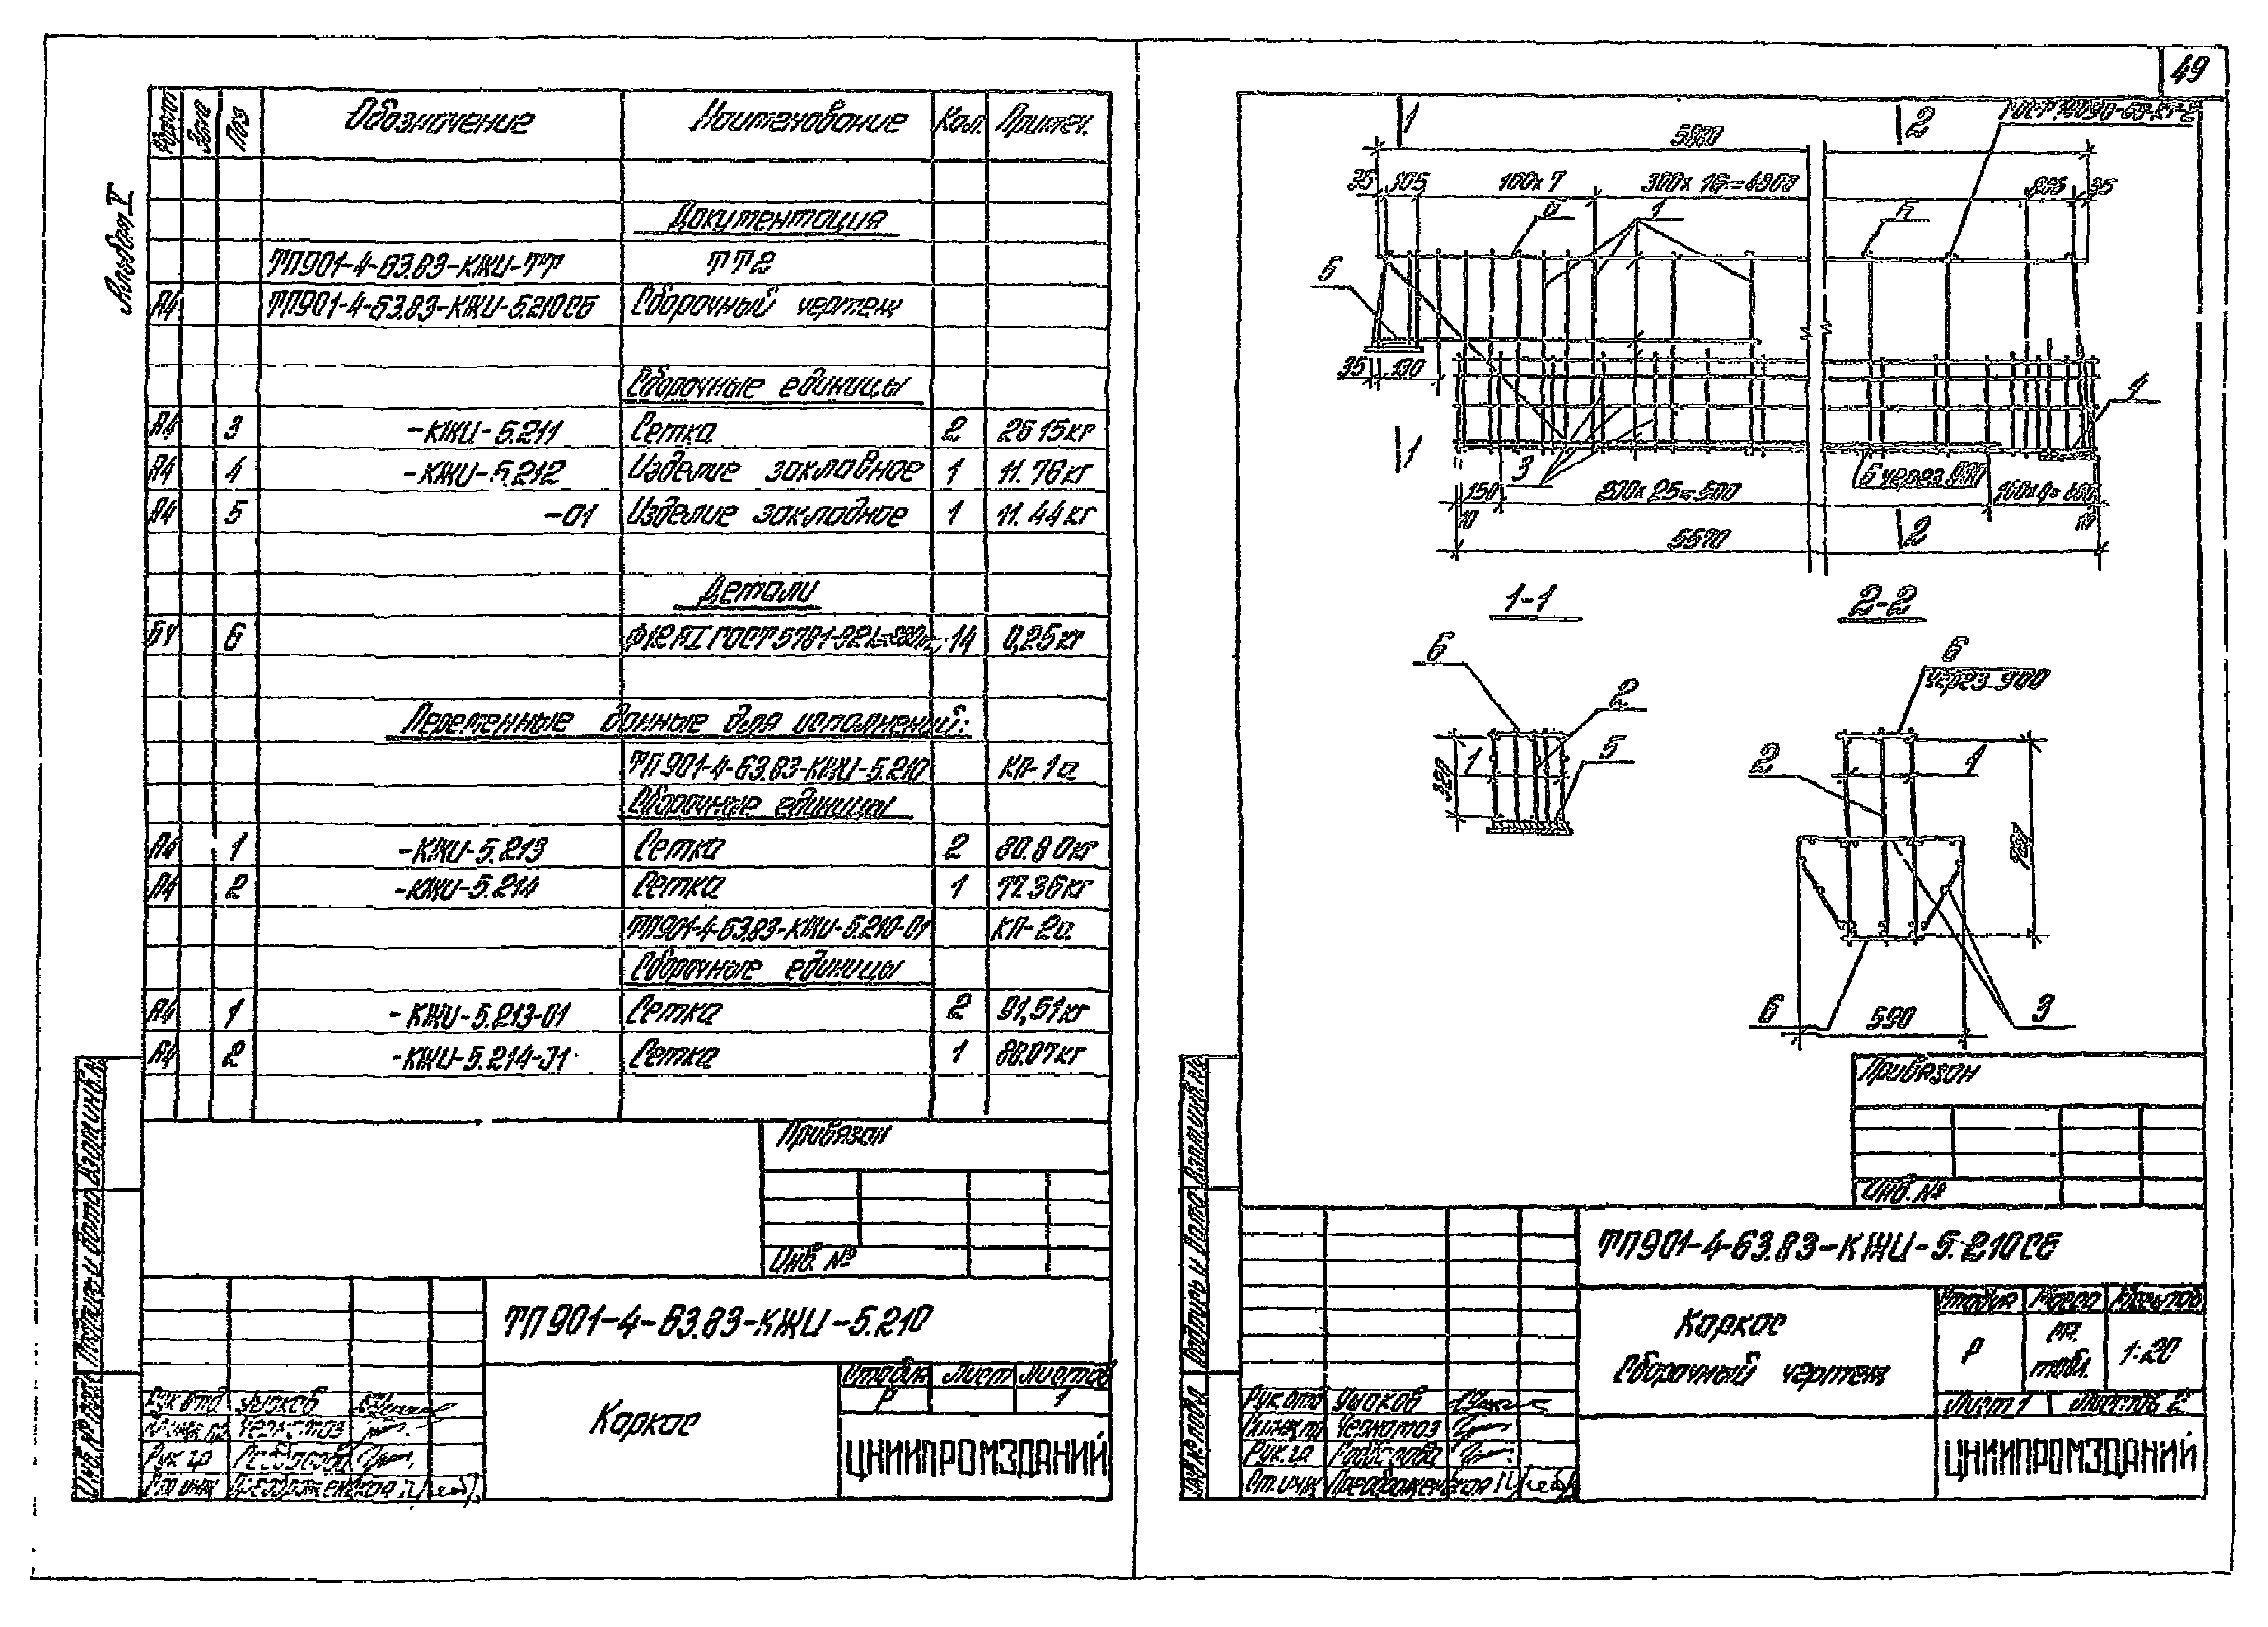 Альбом V
Формат Зона Поз Обозначение Наименование Кол. Примеч.
Документация
ТП901-4-63.83-КЖИ-ТТ ТТ2
А4 ТП901-4-63.83-КЖИ-5.210СБ Сборочный чертеж
Сборочные единицы
А4 3 -КЖИ-5.211 Сетка 2 26 15кг
А4 4 -КЖИ-5.212 Изделие закладное 1 11.76кг
А4 5 -01 Изделие закладное 1 11.44кг
Детали
БЧ 6 ф12АI ГОСТ 5781-82 14 0,25кг
Переменные данные для исполнений:
ТП901-4-63.83-КЖИ-5.210 КП-1а
Сборочные единицы
А4 1 -КЖИ-5.213 Сетка 2 80.80кг
А4 2 -КЖИ-5.214 Сетка 1 77.36кг
ТП901-4-63.83-КЖИ-5.210-01 КП-2а
Сборочные единицы
А4 1 -КЖИ-5.213-01 Сетка 2 91,51кг
А4 2 -КЖИ-5.214-01 Сетка 1 88.07кг
Привязан
Инв. №
ТП901-4-63.83-КЖИ-5.210
Каркас
Стадия Лист Листов
Р 1
ЦНИИПРОМЗДАНИЙ
Рук отд Ушаков
Рук гр
Ст инж Преображенская
Инв.№ подл. Подпись и дата Взам инв.№
49
1 2
35 105 100х7 300х16=4800 35
6 1
5
35 130
4
1
3 6 через 900
150 200х25=500
10
5570
2
1-1 2-2
6 6
через 900
2
1 5 320
2 1
590
6 3
Привязан
Инв. №
ТП901-4-63.83-КЖИ-5.210СБ
Каркас
Сборочный чертеж
Стадия Масса Масштаб
Р см. табл. 1:20
Лист 1 Листов 2
ЦНИИПРОМЗДАНИЙ
Рук отд Ушаков
Рук.гр
Ст.инж Преображенская
Инв.№ подл. Подпись и дата Взам инв.№